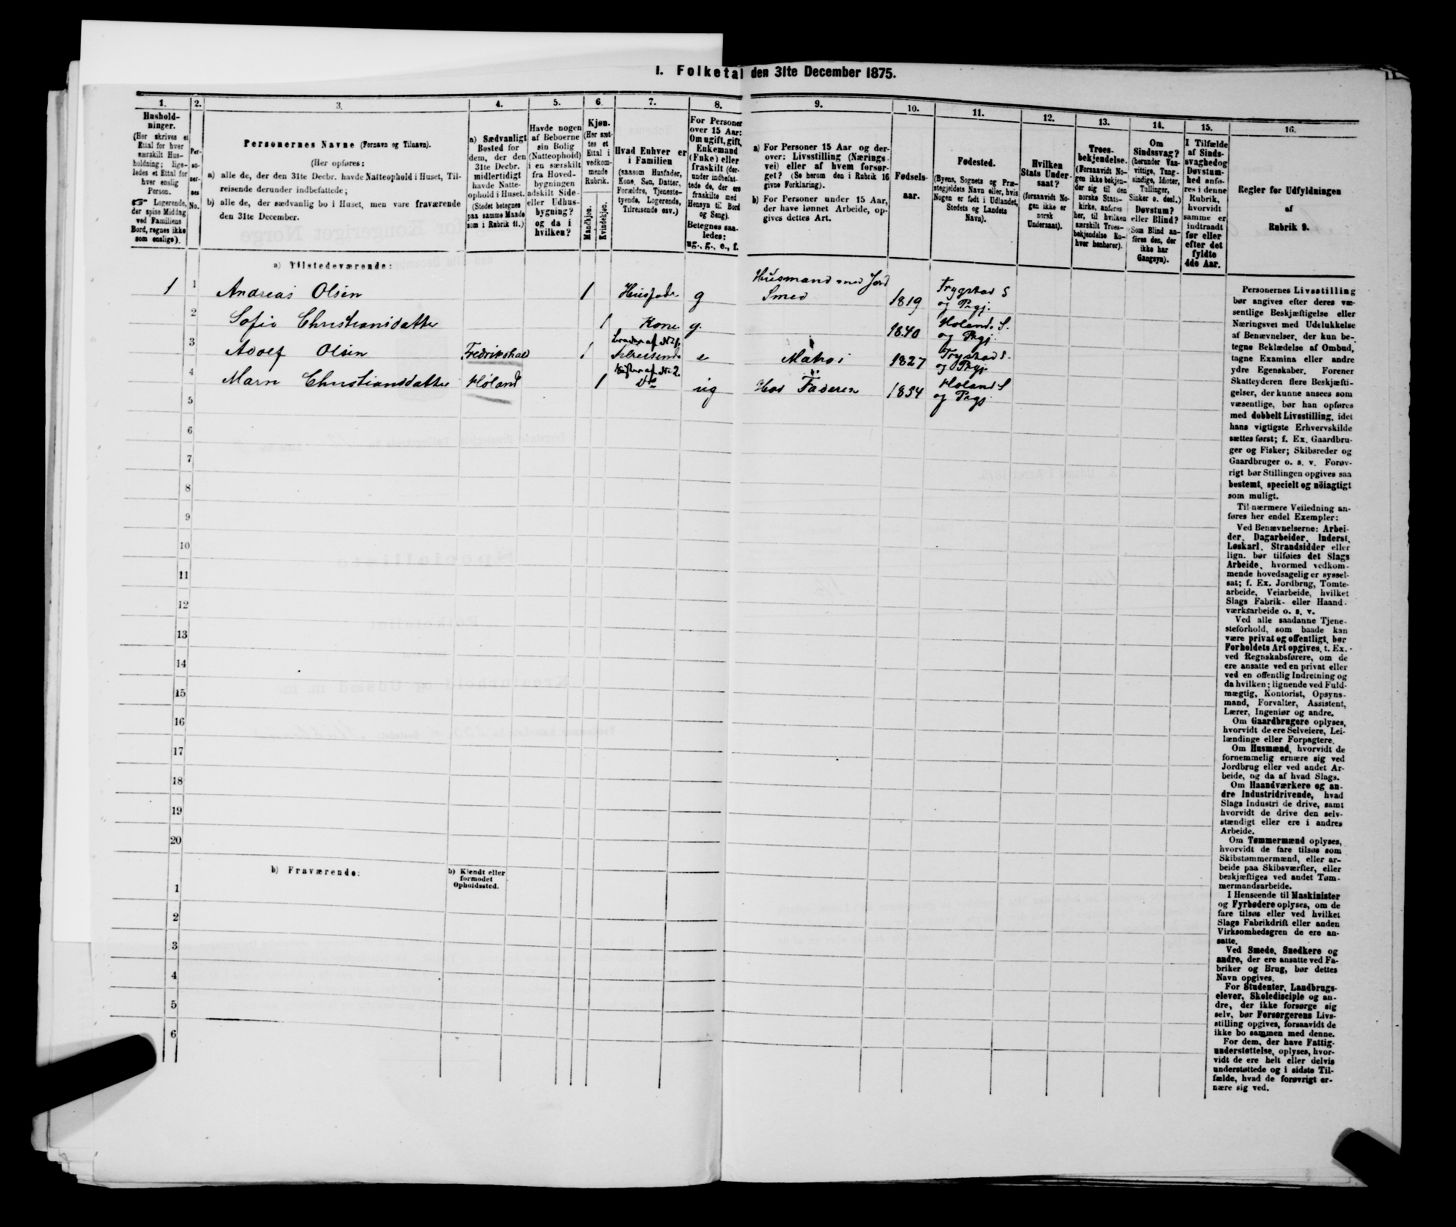 1. Folketal den 31te December 1875.
1. 2. 3. 4. 5. 6. 7. 8. 9. 10. 11. 12. 13. 14. 15. 16.
Hushold-
ninger.
(Her skrives et
Ettal for hver
særskilt Hus-
holdning; lige-
ledes et Ettal for
hver enslig
Person.
Logerende,
der spise Middag
ved Familiens
Bord, regnes ikke
som enslige).
Per-
so-
ner-
nes
No.
Personernes Navne (Fornavn og Tilnavn).
(Her opføres:
a) alle de, der den 31te Decbr. havde Natteophold i Huset, Til-
reisende derunder indbefattede;
b) alle de, der sædvanlig bo i Huset, men vare fraværende
den 31te December.
a) Sædvanligt
Bosted for
dem, der den
31te Decbr.
midlertidigt
havde Natte-
ophold i Huset.
(Stedet betegnes
paa samme Maade
som i Rubrik 11.)
Havde nogen
af Beboerne
sin Bolig
(Natteophold)
i en særskilt
fra Hoved-
bygningen
adskilt Side-
eller Udhus-
bygning?
og da i
hvilken?
Kjøn.
(Her sæt-
tes et
Ettal i
vedkom-
mende
Rubrik.
Mandkjøn.
Kvindekjøn.
Hvad Enhver er
i Familien
(saasom Husfader,
Kone, Søn, Datter,
Forældre, Tjeneste-
tyende, Logerende,
Tilreisende osv.)
For Personer
over 15 Aar:
Om ugift, gift,
Enkemand
(Enke) eller
fraskilt (der-
under indbefat-
tede de, der ere
fraskilte med
Hensyn til Bord
og Seng).
Betegnes saa-
ledes:
ug., g., e., f.
a) For Personer 15 Aar og der-
over: Livsstilling (Nærings-
vei) eller af hvem forsør-
get? (Se herom den i Rubrik 16
givne Forklaring).
b) For Personer under 15 Aar,
der have lønnet Arbeide, op-
gives dettes Art.
Fødsels-
aar.
Fødested.
(Byens, Sognets og Præ-
stegjeldets Navn eller, hvis
Nogen er født i Udlandet,
Stedets og Landets
Navn).
Hvilken
Stats Under-
saat?
(forsaavidt No-
gen ikke er
norsk
Undersaat).
Troes-
bekjendelse.
(Forsaavidt No-
gen ikke bekjen-
der sig til den
norske Stats-
kirke, anføres
her, til hvilken
særskilt Troes-
bekjendelse En-
hver henhører).
Om
Sindssvag?
(herunder Van-
vittige, Tung-
sindige, Idioter,
Tullinger,
Sinker o. desl.)
Døvstum?
eller Blind?
(Som Blind an-
føres den, der
ikke har
Gangsyn).
I Tilfælde
af Sinds-
svaghed og
Døvstum-
hed anfø-
res i denne
Rubrik,
hvorvidt
samme er
indtraadt
før eller
efter det
fyldte
4de Aar.
Regler for Udfyldningen
af
Rubrik 9.
a) Tilstedeværende:
1 1 Andreas Olsen 1 Husfader g Husmand med Jord Smed 1819 Trygstad S og Pgj.
2 Sofie Christiansdatter 1 Kone g. 1840 Høland S. og Pgj.
3 Adolf Olsen Fredrikshald 1 e 1827 Trygstad S. og Pgj.
4 Marn Christiansdatter Høland 1 Søster af No 2 Do ug Hos Faderen 1834 Høland S og Pgj
5
6
7
8
9
10
11
12
13
14
15
16
17
18
19
20
b) Fraværende:
b) Kjendt eller
formodet
Opholdssted.
1
2
3
4
5
6
Personernes Livsstilling
bør angives efter deres væ-
sentlige Beskjæftigelse eller
Næringsvei med Udelukkelse
af Benævnelser, der kun be-
tegne Beklædelse af Ombud,
tagne Examina eller andre
ydre Egenskaber. Forener
Skatteyderen flere Beskjæfti-
gelser, der kunne ansees som
væsentlige, bør han opføres
med dobbelt Livsstilling, idet
hans vigtigste Erhvervskilde
sættes først; f. Ex. Gaardbru-
ger og Fisker; Skibsreder og
Gaardbruger o. s. v. Forøv-
rigt bør Stillingen opgives saa
bestemt, specielt og nöiagtigt
som muligt.
Til nærmere Veiledning an-
føres her endel Exempler:
Ved Benævnelserne: Arbei-
der, Dagarbeider, Inderst,
Løskarl, Strandsidder eller
lign. bør tilføies det Slags
Arbeide, hvormed vedkom-
mende hovedsagelig er syssel-
sat; f. Ex. Jordbrug, Tomte-
arbeide, Veiarbeide, hvilket
Slags Fabrik- eller Haand-
værksarbeide o. s. v.
Ved alle saadanne Tjene-
steforhold, som baade kan
være privat og offentligt, bør
Forholdets Art opgives, t. Ex.
ved Regnskabsførere, om de
ere ansatte ved en privat eller
ved en offentlig Indretning og
da hvilken; lignende ved Fuld-
mægtig, Kontorist, Opsyns-
mand, Forvalter, Assistent,
Lærer, Ingeniør og andre.
Om Gaardbrugere oplyses,
hvorvidt de ere Selveiere, Lei-
lændinge eller Forpagtere.
Om Husmænd, hvorvidt de
fornemmelig ernære sig ved
Jordbrug eller ved andet Ar-
beide, og da af hvad Slags.
Om Haandværkere og an-
dre Industridrivende, hvad
Slags Industri de drive, samt
hvorvidt de drive den selv-
stændigt eller ere i andres
Arbeide.
Om Tømmermænd oplyses,
hvorvidt de fare tilsøs som
Skibstømmermænd, eller ar-
beide paa Skibsværfter, eller
beskjæftiges ved andet Tøm-
mermandsarbeide.
I Henseende til Maskinister
og Fyrbødere oplyses, om de
fare tilsøs eller ved hvilket
Slags Fabrikdrift eller anden
Virksomhedsgren de ere an-
satte.
Ved Smede, Snedkere og
andre, der ere ansatte ved Fa-
briker og Brug, bør dettes
Navn opgives.
For Studenter, Landbrugs-
elever, Skoledisciple og an-
dre, der ikke forsørge sig
selv, bør Forsørgerens Livs-
stilling opgives, forsaavidt de
ikke bo sammen med denne.
For dem, der have Fattig-
understøttelse, oplyses, hvor-
vidt de ere helt eller delvis
understøttede og i sidste Til-
fælde, hvad de forøvrigt er-
nære sig ved.